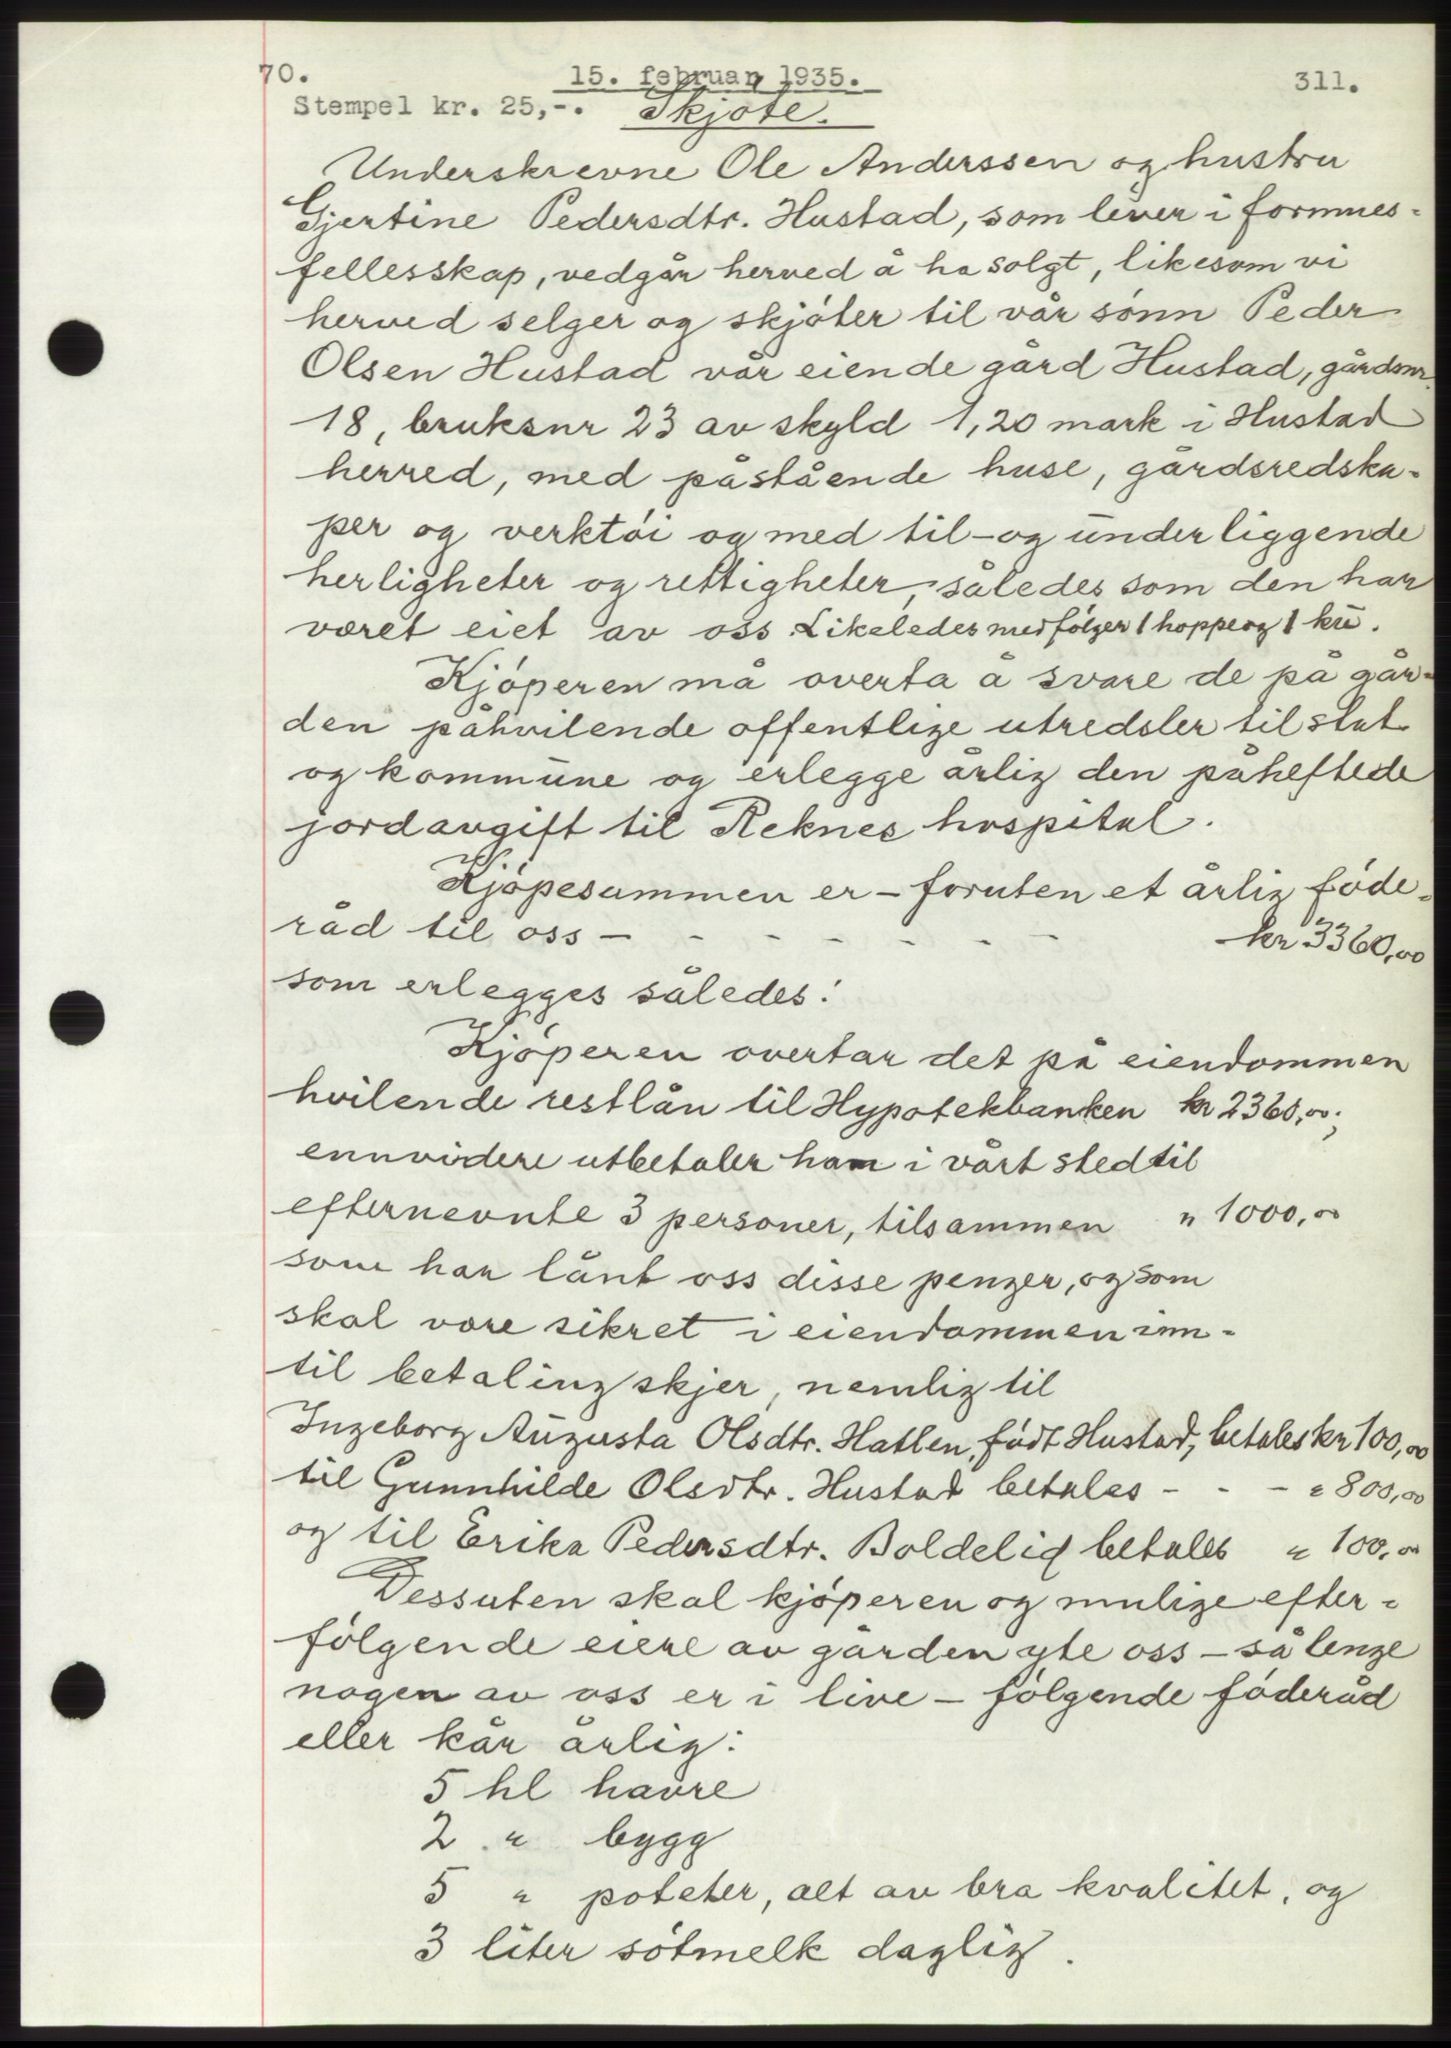 70. 15. februar 1935. 311.
Stempel kr. 25,-. Skjøte.
Underskrevne Ole Anderssen og hustru
Gjertine Pedersdtr. Hustad, som lever i formues-
fellesskap, vedgår herved å ha solgt, likesom vi
herved selger og skjóter til vår sónn Peder
Olsen Hustad vår eiende gård Hustad, gårdsnr.
18, bruksnr 23 av skyld 1,20 mark i Hustad
herred, med påstående huse, gårdsredska-
per og verktói og med til- og underliggende
herligheter og rettigheter, således som den har
været eiet av oss. Likeledes medfólger 1 hoppe og 1 ku.
Kjóperen må overta å svare de på går-
den påhvilende offentlige utredsler til stat
og kommune og erlegge årlig den påheftede
jordavgift til Reknes hospital.
Kjópesummen er - foruten et årlig fóde-
råd til oss - - - - - - - kr 3360,00
som erlegges således:
Kjóperen overtar det på eiendommen
hvilende restlån til Hypotekbanken kr 2360,00;
ennvidere utbetaler ham i vårt sted til
efternevnte 3 personer, tilsammen " 1000,00
som har lånt oss disse penger, og som
skal være sikret i eiendommen inn-
til betaling skjer, nemlig til
Ingeborg Augusta Olsdtr. Hatlen, fódt Hustad, betales kr 100,00
til Gunnhilde Olsdtr. Hustad betales - - - " 800,00
og til Erika Pedersdtr. Boldelid betales " 100,00
Dessuten skal kjóperen og mulige efter-
fólgende eiere av gården yte oss - så lenge
nogen av oss er i live - fólgende fóderåd
eller kår årlig:
5 hl havre
2 " bygg
5 " poteter, alt av bra kvalitet, og
3 liter sótmelk daglig.